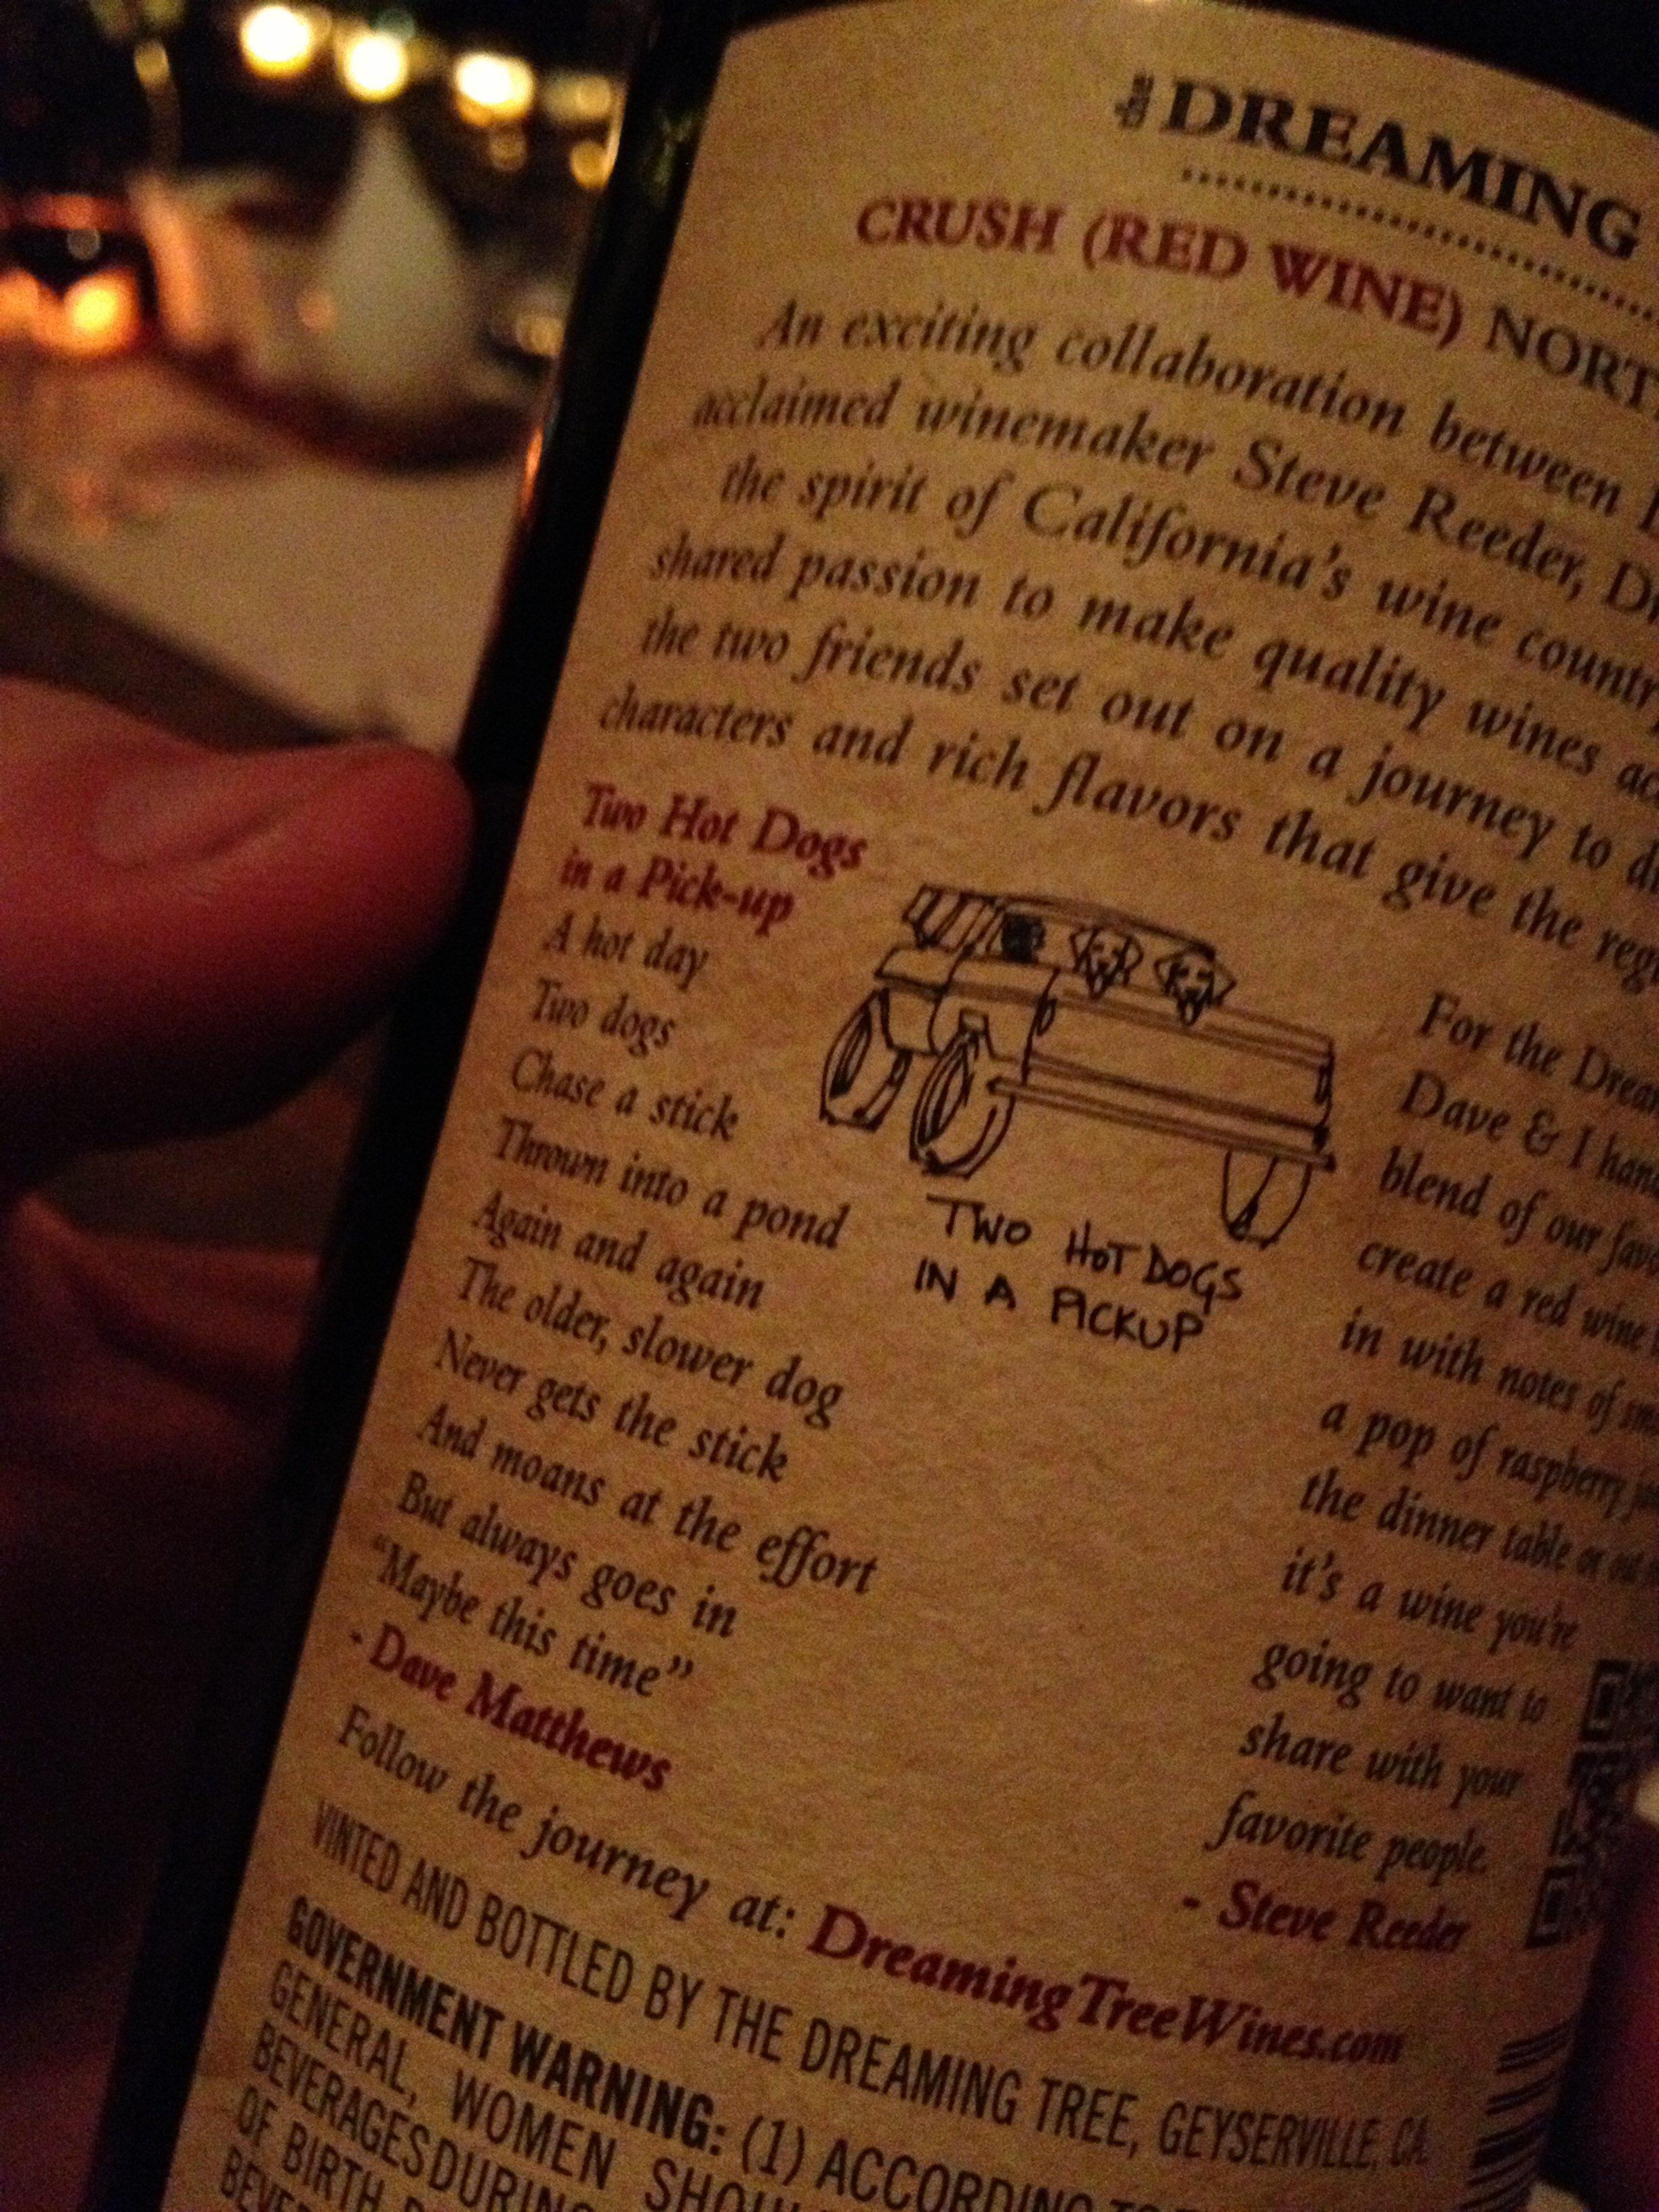 the DREAMING
CRUSH (RED WINE) NORT
An exciting collaboration between
acclaimed winemaker Steve Reeder, D
the spirit of California's wine countr
shared passion to make quality wines ac
the two friends set out on a journey to di
characters and rich flavors that give the reg
Two Hot Dogs
in a Pick-up
A hot day
Two dogs
Chase a stick
Thrown into a pond
Again and again
The older, slower dog
Never gets the stick
And moans at the effort
But always goes in
"Maybe this time"
- Dave Matthews
TWO HOT DOGS
IN A PICKUP
For the Dream
Dave & I han
blend of our favo
create a red wine
in with notes of sm
a pop of raspberry
the dinner table or out
it's a wine you're
going to want to
share with your
favorite people.
- Steve Reeder
Follow the journey at: DreamingTreeWines.com
VINTED AND BOTTLED BY THE DREAMING TREE, GEYSERVILLE, CA
GOVERNMENT WARNING: (1) ACCORDING TO
GENERAL, WOMEN SHOU
BEVERAGES DURING
OF BIRTH D
BEVER